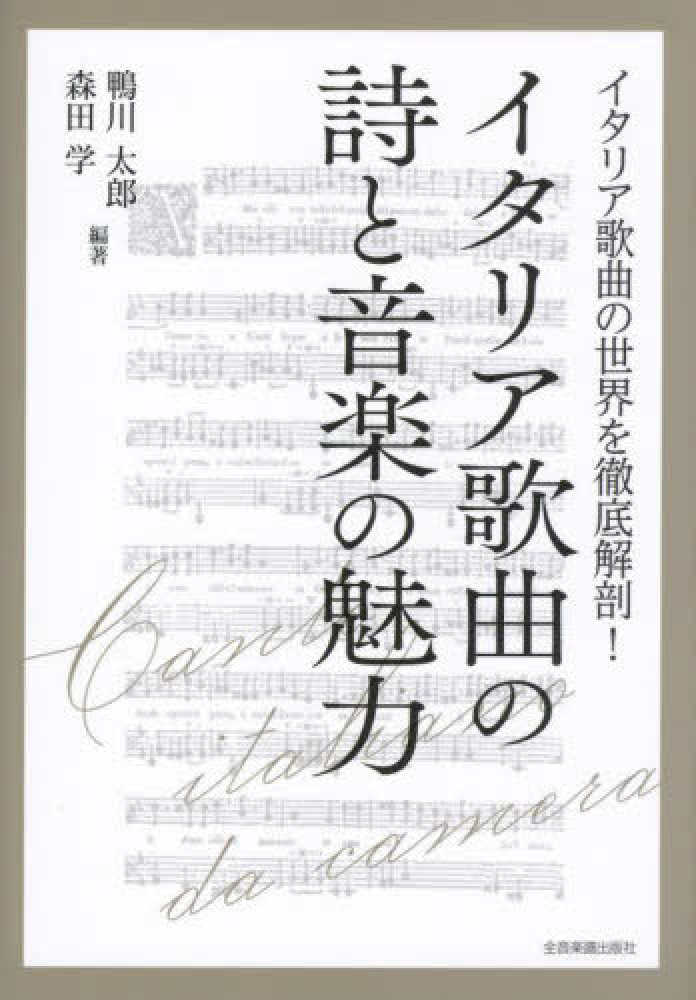 イタリア歌曲の世界を徹底解剖！
イタリア歌曲の
詩と音楽の魅力
鴨川 太郎
森田 学
編著
Canto
italiano
da camera
全音楽譜出版社